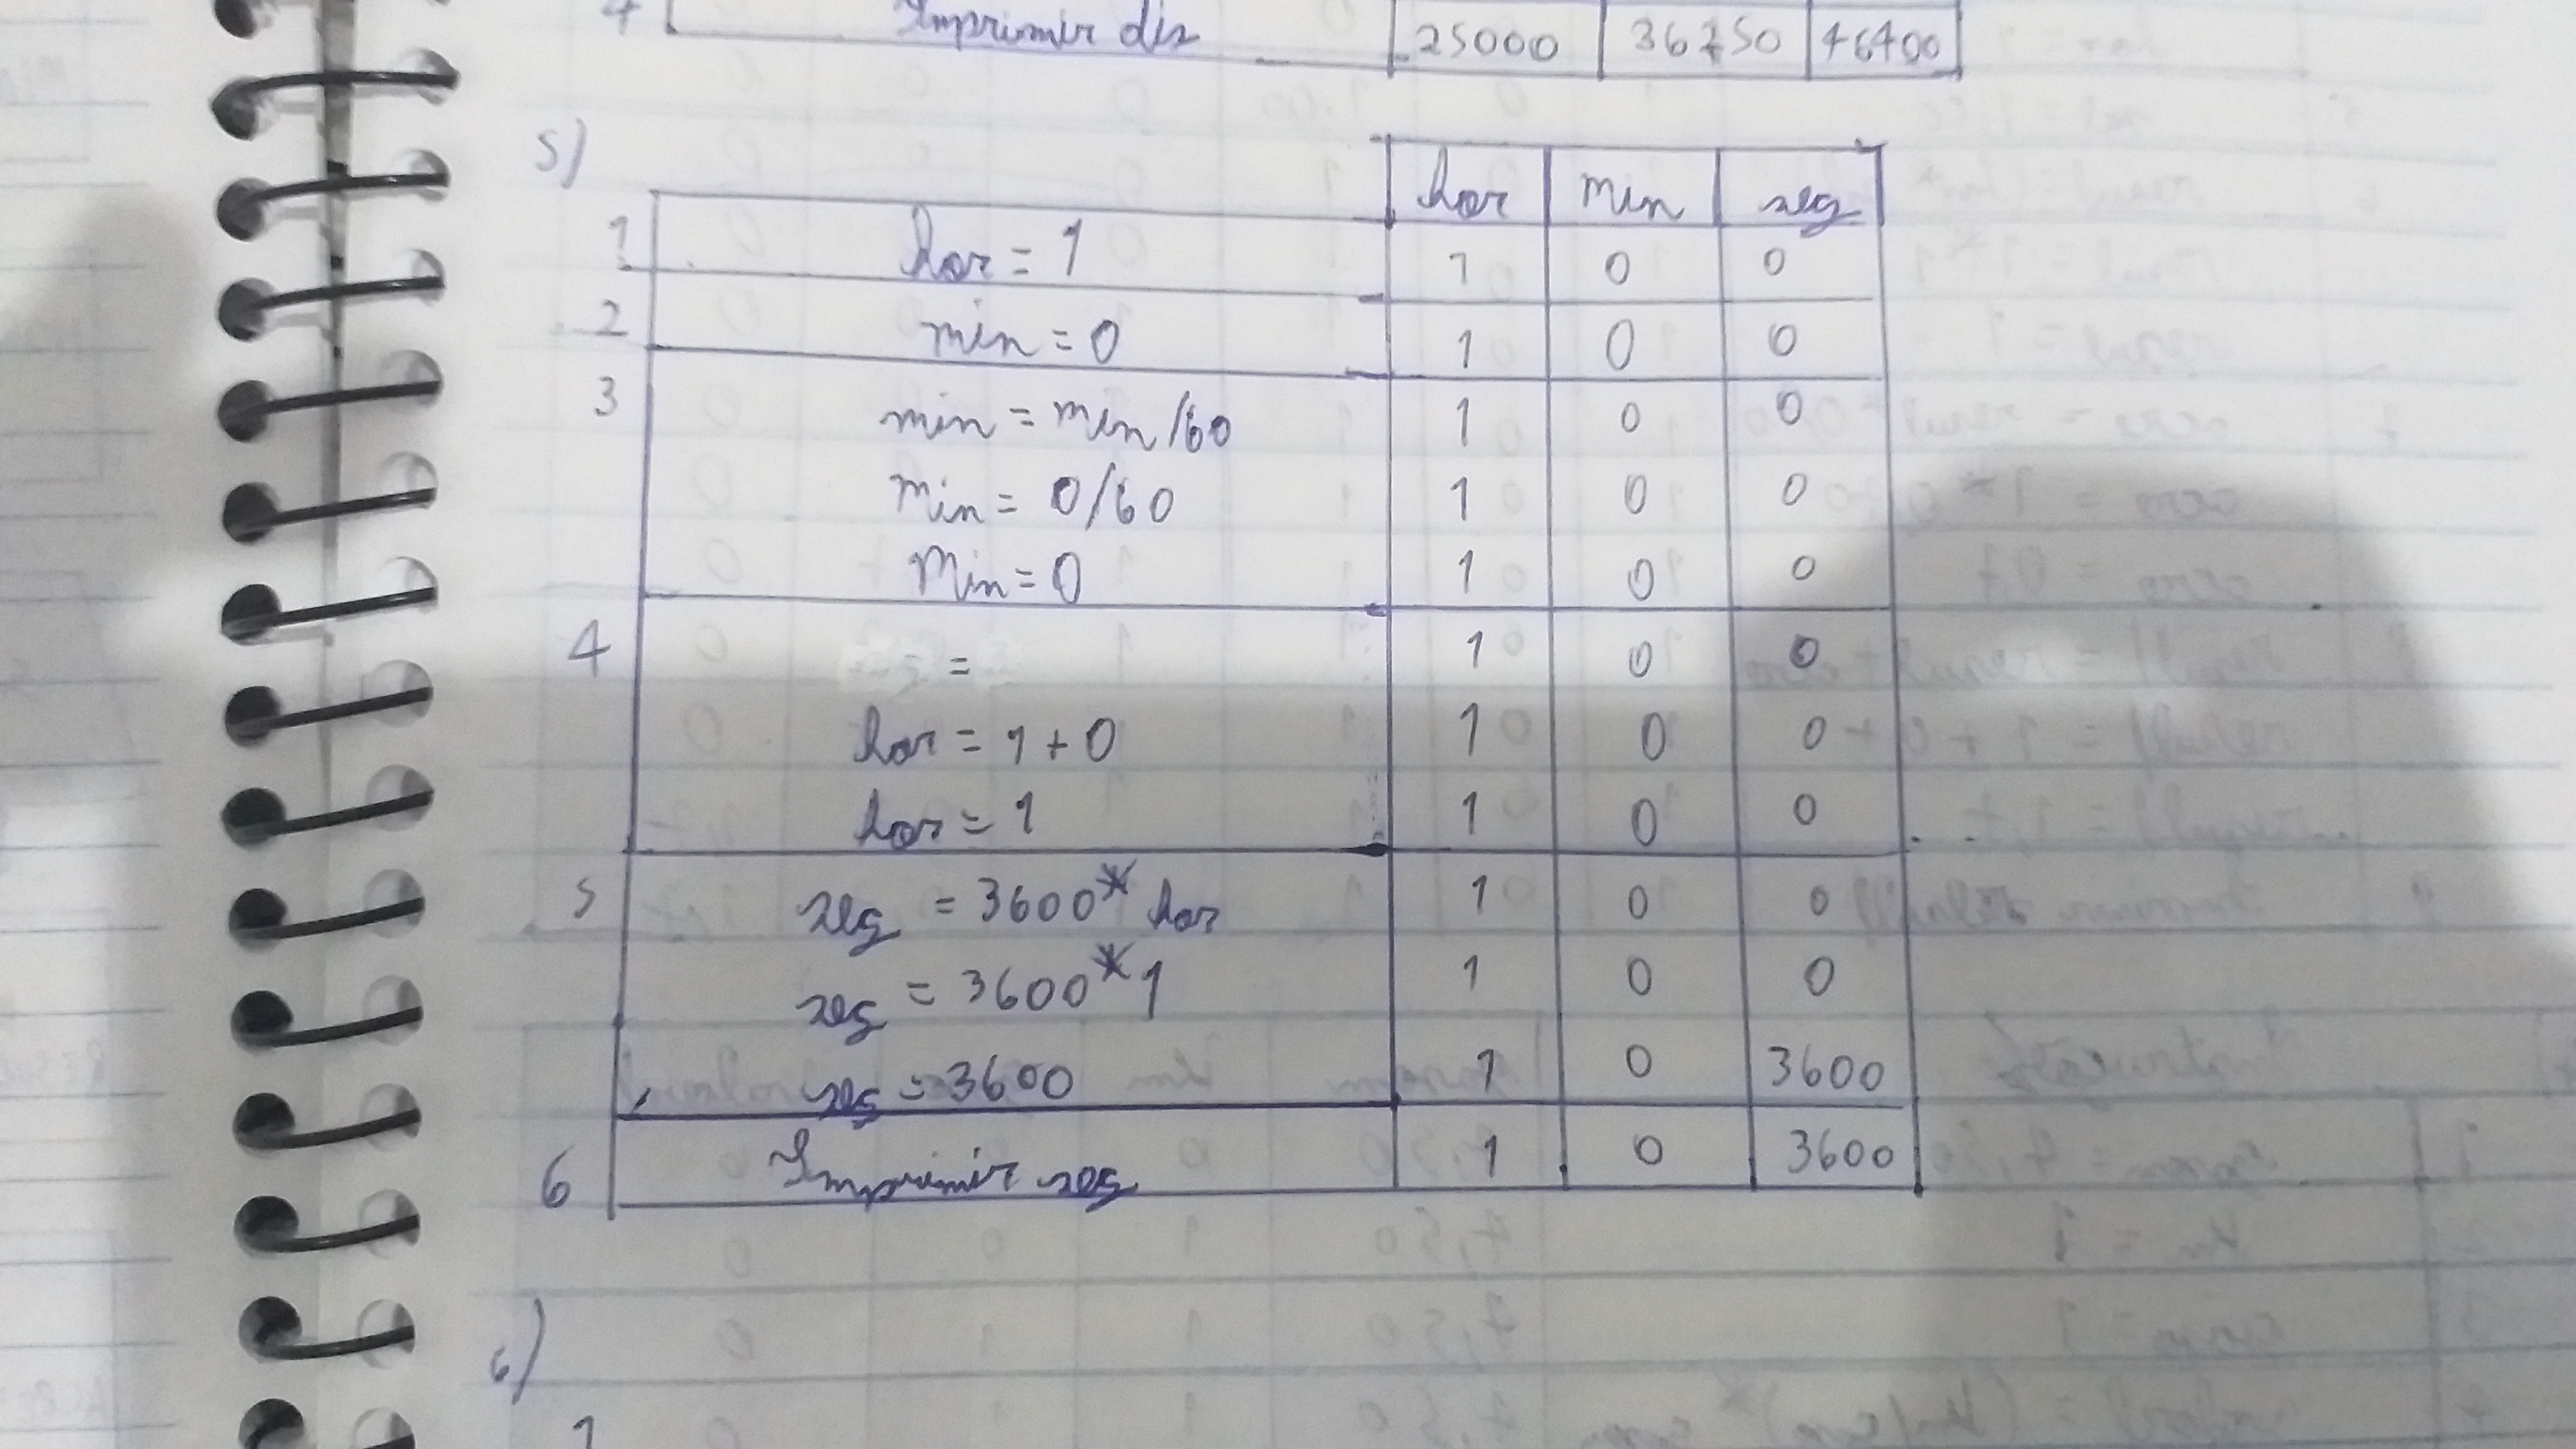 4 Imprimir dis 25000 36250 46400
5)
hor min seg
1 hor = 1 1 0 0
2 min = 0 1 0 0
3 min = min/60 1 0 0
min = 0/60 1 0 0
Min = 0 1 0 0
4 = 1 0 0
hor = 1 + 0 1 0 0
hor = 1 1 0 0
5 seg = 3600 * hor 1 0 0
seg = 3600 * 1 1 0 0
seg = 3600 1 0 3600
6 Imprimir seg 1 0 3600
6)
1